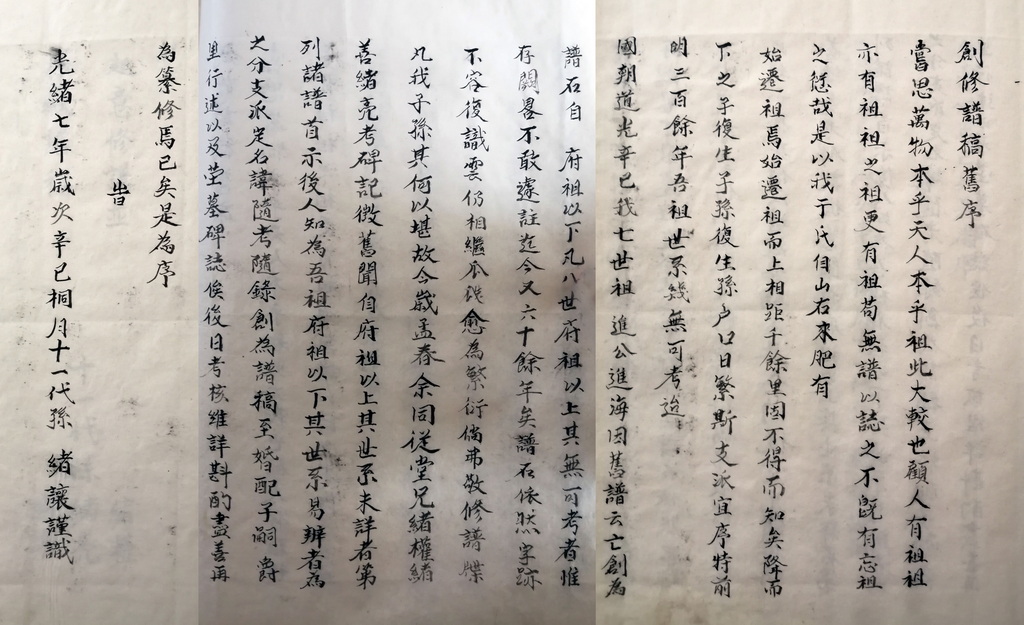 創修譜稿舊序
嘗思萬物本乎天人本乎祖此大較也顧人有祖祖
亦有祖祖之祖更有祖苟無譜以誌之不旣有忘祖
之愆哉是以我于氏自山右來肥有
始遷祖焉始遷祖而上相距千餘里固不得而知矣降而
下之子復生子孫復生孫户口日繁斯支派宜序特前
明三百餘年吾祖世系幾無可考迨
國朝道光辛巳我七世祖 進公進海因舊譜云亡創為
譜石自 府祖以下凡八世府祖以上其無可考者惟
存闕畧不敢遽註迄今又六十餘年矣譜石依然字跡
不容復識雲仍相繼瓜瓞愈為繁衍倘弗敬修譜牒
凡我子孫其何以堪故今歲孟春余同從堂兄緒權緒
善緒亮考碑記徵舊聞自府祖以上其世系未詳者第
列諸譜首示後人知為吾祖府祖以下其世系易辨者為
之分支派定名諱隨考隨錄創為譜稿至婚配子嗣 爵
里行述以及塋墓碑誌俟後日考核維詳斟酌盡善再
為纂修焉已矣是為序
旹
光緒七年歲次辛巳桐月十一代孫 緒讓謹識